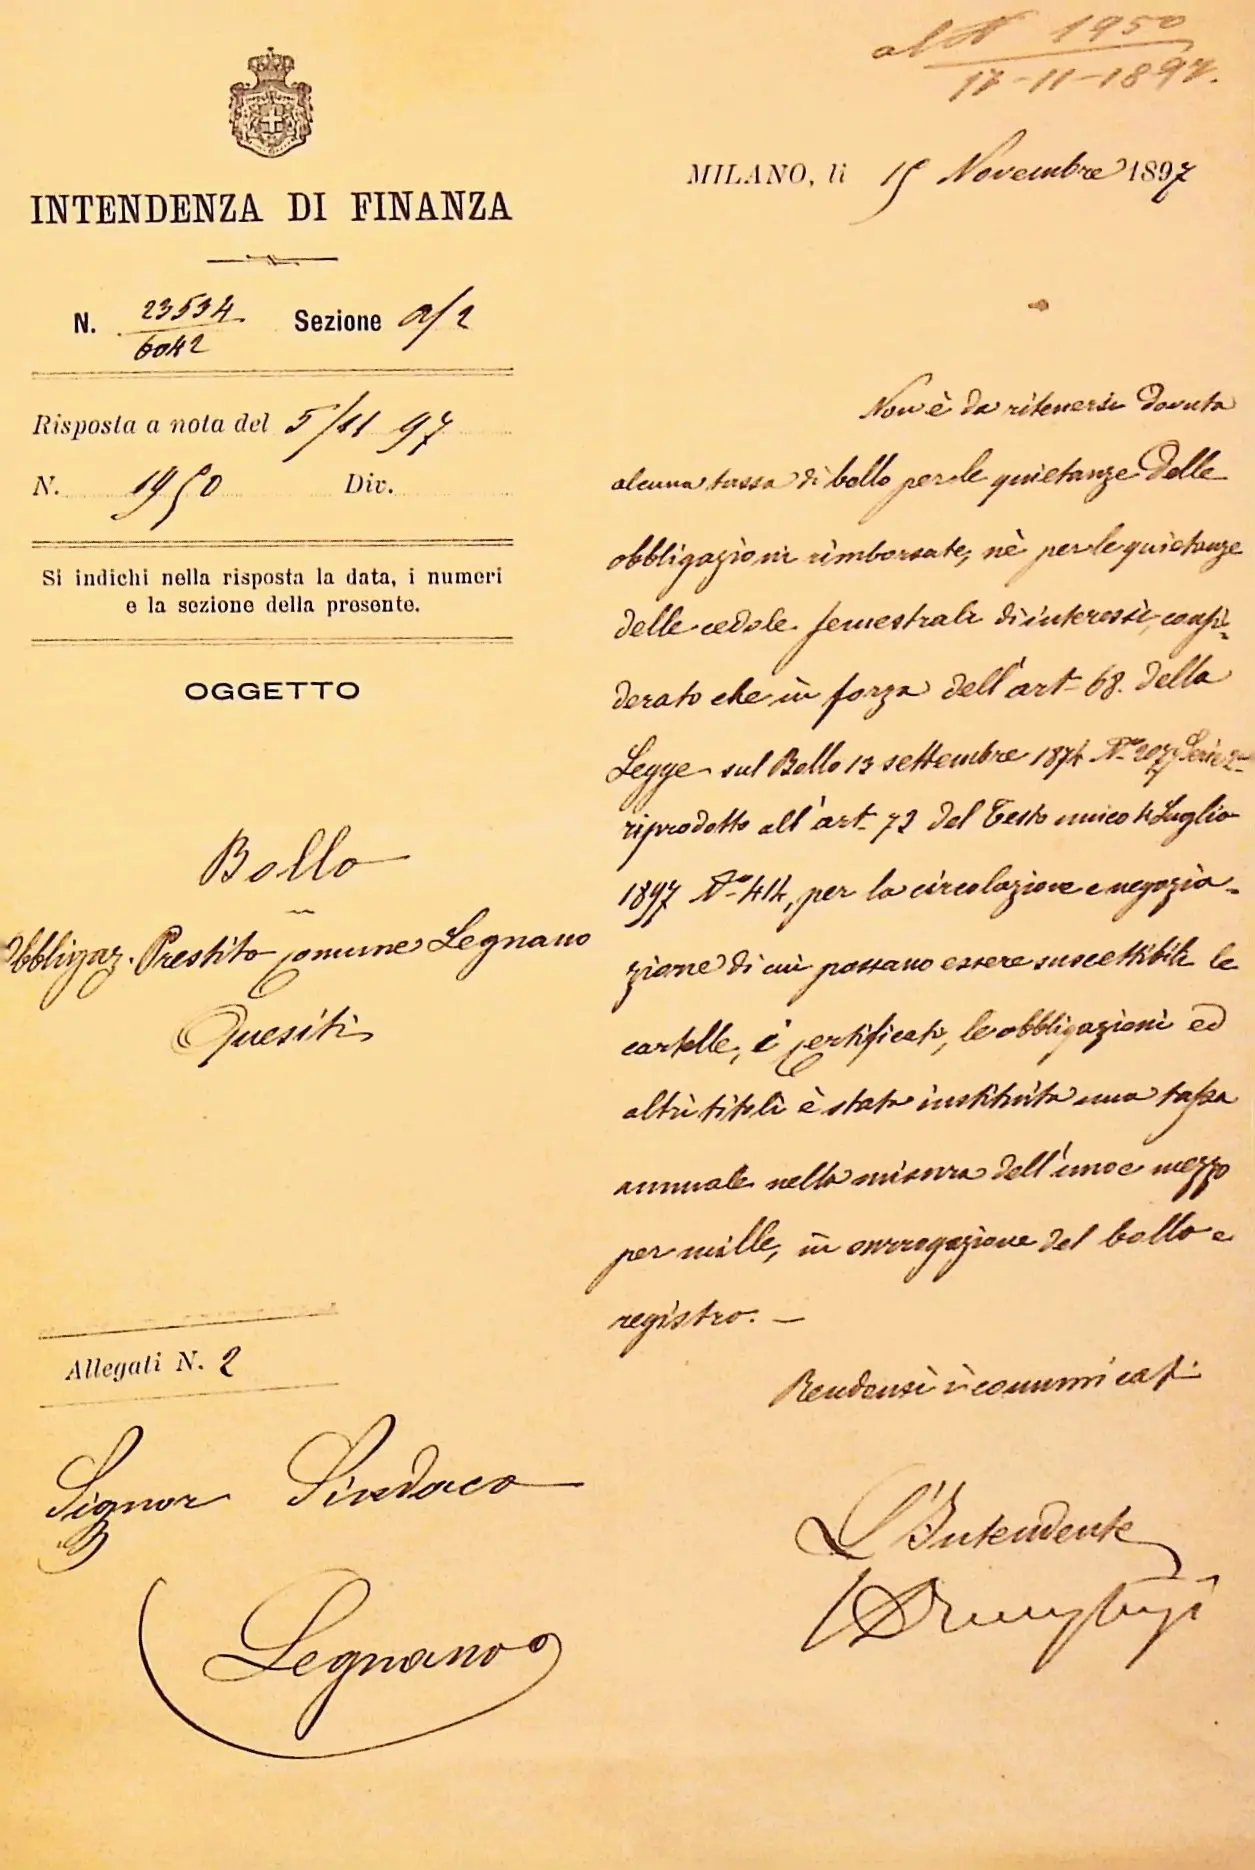 al N 1950
17-11-1897.
INTENDENZA DI FINANZA
MILANO, li 15 Novembre 1897
N. 23534/6042 Sezione a/2
Risposta a nota del 5/11 97
N. 1950 Div.
Si indichi nella risposta la data, i numeri
e la sezione della presente.
OGGETTO
Bollo
Obbligaz. Prestito Comune Legnano
Quesiti
Allegati N. 2
Signor Sindaco
Legnano
Non è da ritenersi dovuta
alcuna tassa di bollo per le quietanze delle
obbligazioni rimborsate, nè per le quietanze
delle cedole semestrali di interessi, consi-
derato che in forza dell'art. 68. della
Legge sul Bollo 13 settembre 1874 No 2077 Serie 2a
riprodotto all'art. 72 del Testo unico 4 Luglio
1897 No 414, per la circolazione e negozia-
zione di cui possano essere suscettibili le
cartelle, i certificati, le obbligazioni ed
altri titoli è stata instituita una tassa
annuale nella misura dell'uno e mezzo
per mille, in surrogazione del bollo e
registro. —
Rendonsi i comunicati
L'Intendente